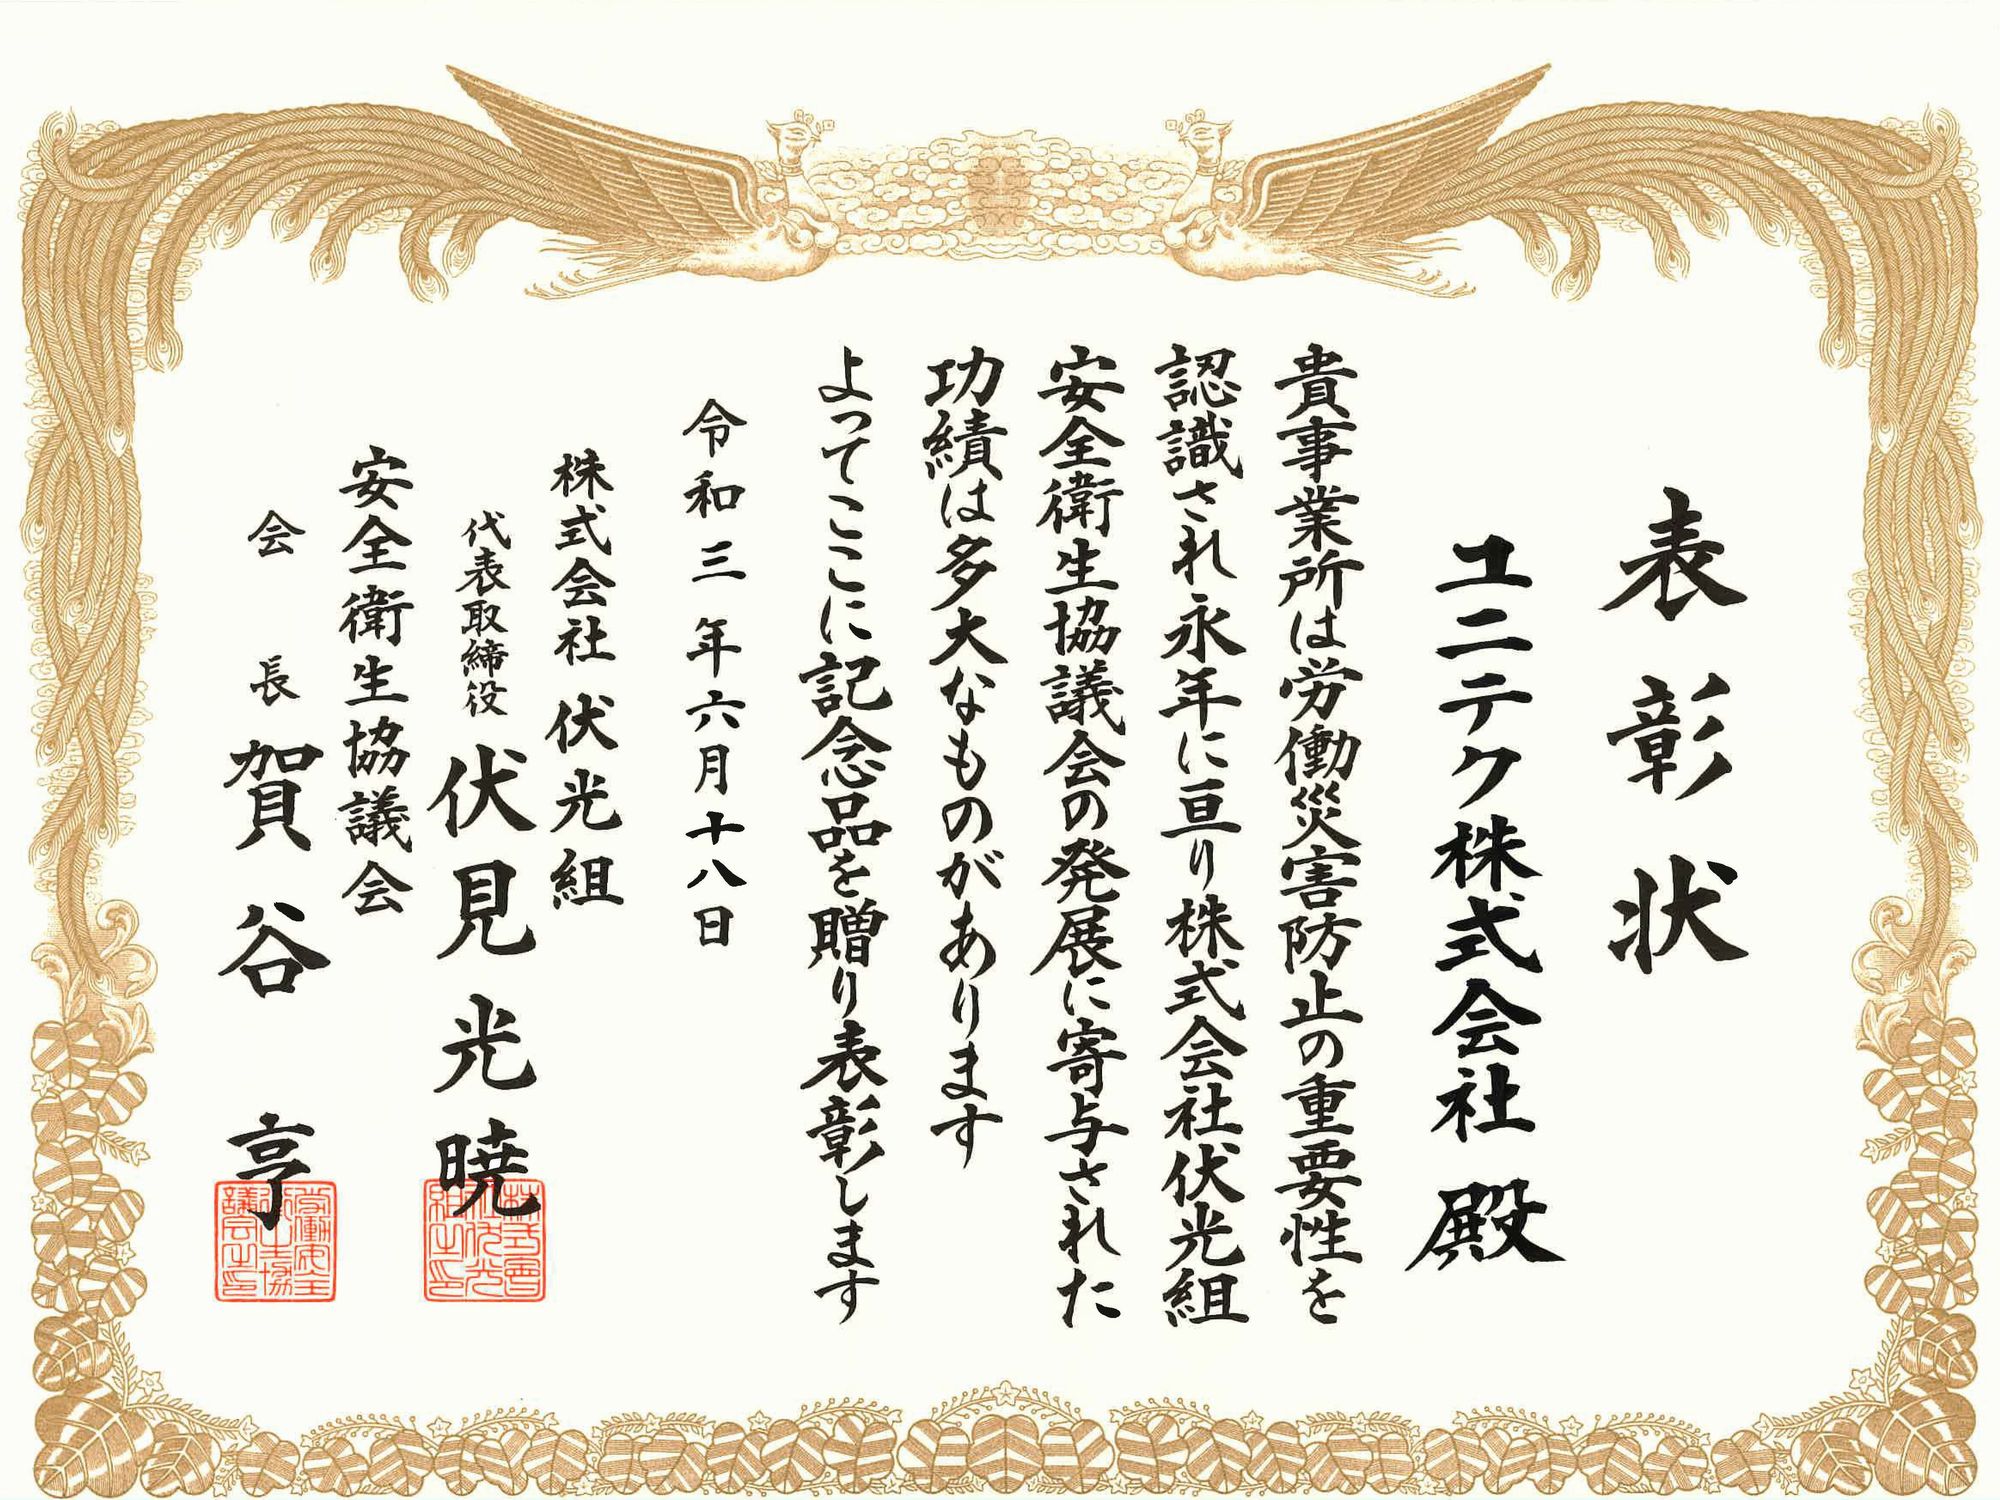 表彰状
ユニテク株式会社 殿
貴事業所は労働災害防止の重要性を
認識され永年に亘り株式会社伏光組
安全衛生協議会の発展に寄与された
功績は多大なものがあります
よってここに記念品を贈り表彰します
令和三年六月十八日
株式会社 伏光組
代表取締役 伏見光暁
安全衛生協議会
会長 賀谷亨